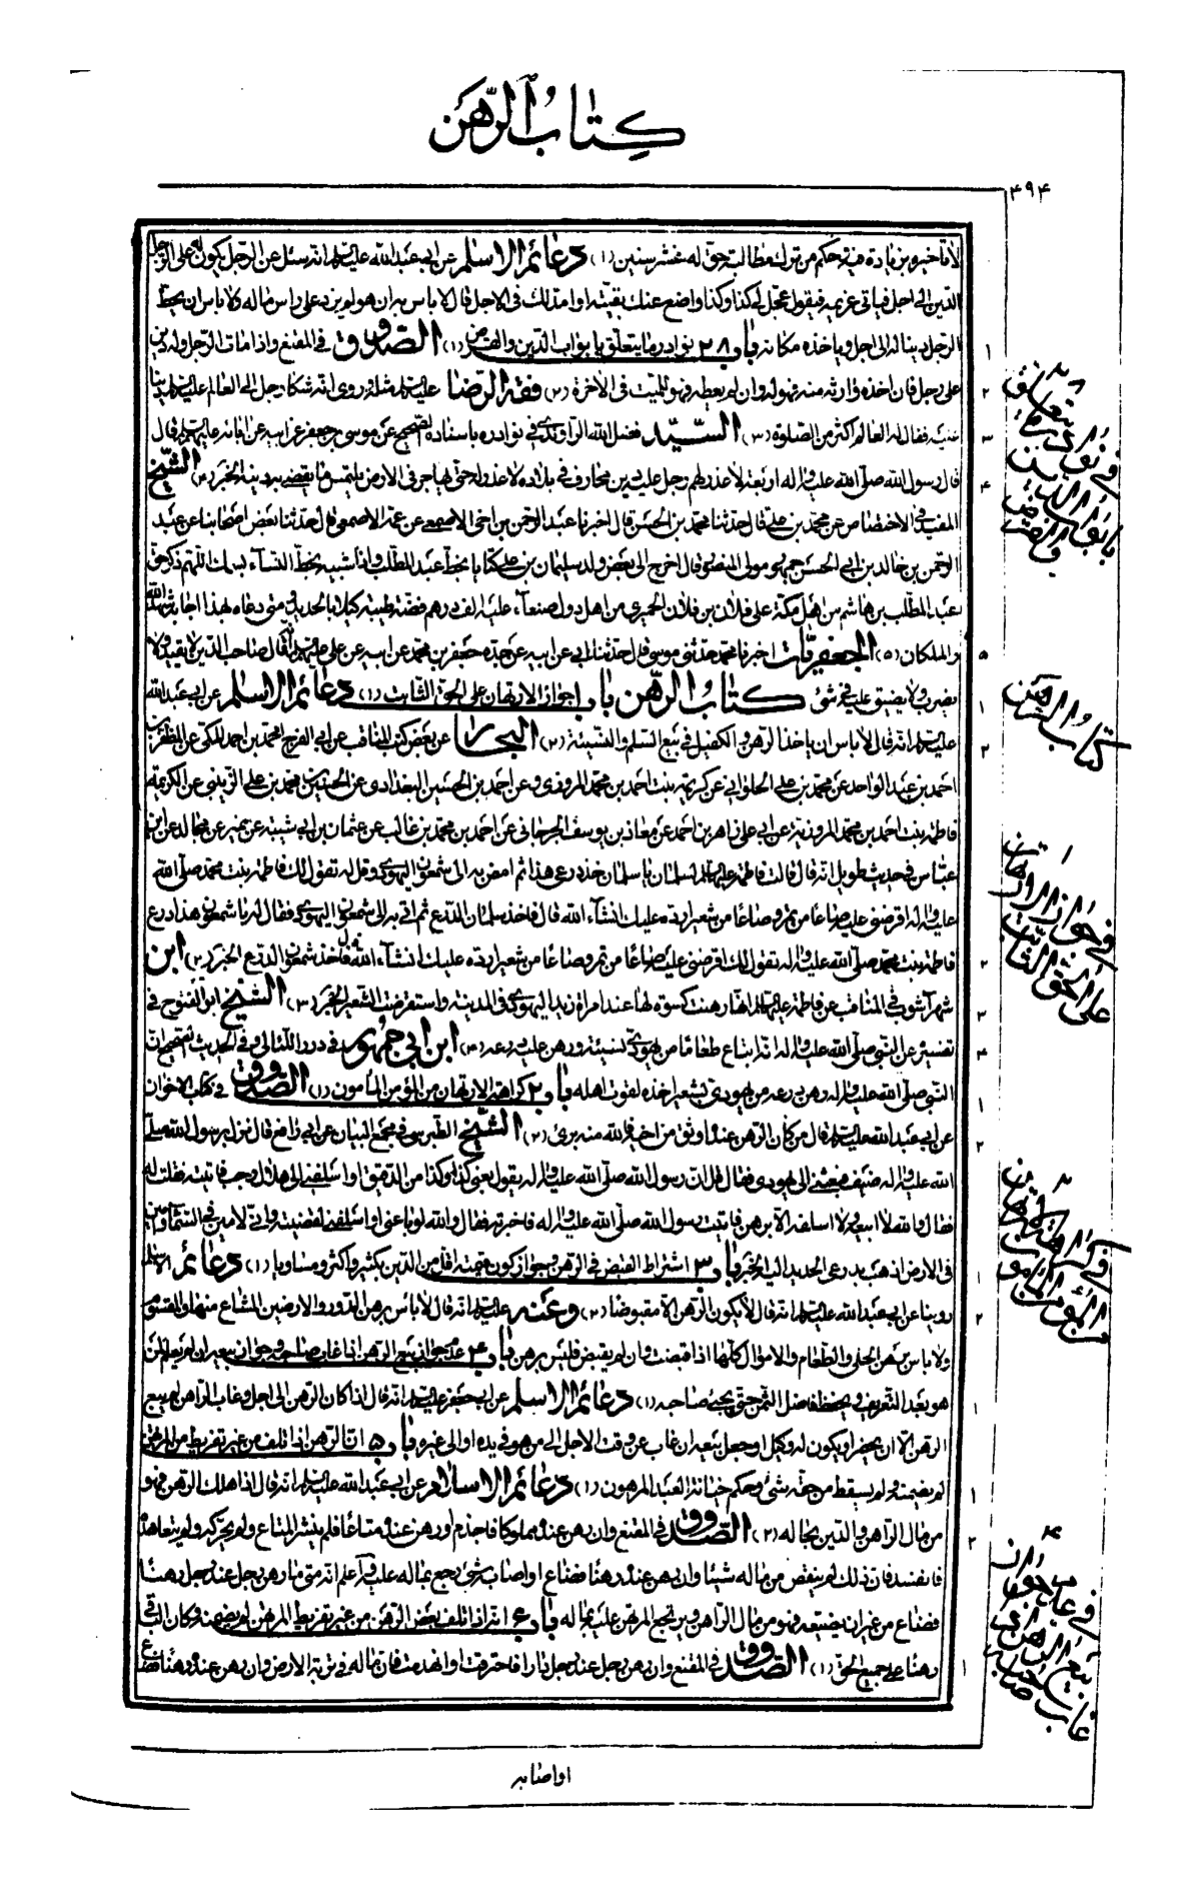 كتاب الرهن
۴۹۴
لا تأخير وبزيادة فيه وحكم من ترك مطالبة حق له عشر سنين (١) دعائم الاسلام عن ابي عبد الله عليه السلام انه سئل عن الرجل يكون له على الرجل
الدين الى اجل فياتي غريمه فيقول عجل لي كذا وكذا واضع عنك بقيته او امد لك في الاجل قال لا باس به ان هو لم يزد على راس ماله ولا باس ان يحط
الرجل دينا له الى اجل وياخذه مكانه باب ٢٨ نوادر ما يتعلق بابواب الدين والقرض (١) الصدوق في المقنع واذا مات الرجل وله دين
على رجل فان اخذه وارثه منه فهو له وان لم يعطه فهو للميت في الاخرة (٢) فقه الرضا عليه السلام مثله وروى انه شكا رجل الى العالم عليه السلام دينا
عليه فقال له العالم اكثر من الصلوة (٣) السيد فضل الله الراوندي في نوادره باسناده الصحيح عن موسى بن جعفر عن ابيه عن ابائه عليهم السلام قال
قال رسول الله صلى الله عليه واله اربعة لا عذر لهم رجل عليه دين محارف في بلاده لا عذر له حتى يهاجر في الارض يلتمس ما يقضي به دينه الخبر (۴) الشيخ
المفيد في الاختصاص عن محمد بن علي قال حدثنا محمد بن الحسن قال اخبرنا عبد الرحمن بن اخي الاصمعي عن عمه الاصمعي قال حدثنا بعض اصحابنا عن عبد
الرحمن بن خالد بن ابي الحسن جمهور مولى المنصور قال اخرج الى بعض ولد سليمان بن علي كتابا بخط عبد المطلب واذا شبيه بخط النساء بسمك اللهم ذكر حق
عبد المطلب بن هاشم من اهل مكة على فلان بن فلان الحميري من اهل دول صنعاء عليه الف درهم فضة طيبة كيلا بالحديد ومتى دعاه بهذا اجابه شهد الله
والملكان (۵) الجعفريات اخبرنا محمد حدثني موسى قال حدثنا ابي عن ابيه عن جده جعفر بن محمد عن ابيه عن علي عليهم السلام قال صاحب الدين لا يقيد ولا
يضرب ولا يضيق عليه في شئ كتاب الرهن باب ١ جواز الارتهان على الحق الثابت (١) دعائم الاسلام عن ابي عبد الله
عليه السلام انه قال لا باس ان ياخذ الرهن والكفيل في بيع السلم والنسيئة (٢) البحار عن بعض كتب المناقب عن ابي الفرج محمد بن احمد المكي عن المظفر بن
احمد بن عبد الواحد عن محمد بن علي الحلواني عن كريمة بنت احمد بن محمد المروزي وعن احمد بن الحسين البغدادي عن الحسين بن محمد بن علي الزينبي عن الكريمة
فاطمة بنت احمد بن محمد المروزية عن ابي علي زاهر بن احمد عن معاذ بن يوسف الجرجاني عن احمد بن محمد بن غالب عن عثمان بن ابي شيبة عن نمير عن مجالد عن ابن
عباس في حديث طويل انه قال قالت فاطمة عليها السلام لسلمان يا سلمان خذ درعي هذا ثم امض به الى شمعون اليهودي وقل له تقول لك فاطمة بنت محمد صلى الله
عليه واله اقرضني عليه صاعا من تمر وصاعا من شعير ارده عليك انشاء الله قال فاخذ سلمان الدرع ثم اتى به الى شمعون اليهودي فقال له يا شمعون هذا درع
فاطمة بنت محمد صلى الله عليه واله تقول لك اقرضني عليه صاعا من تمر وصاعا من شعير ارده عليك انشاء الله قال فاخذ شمعون الدرع الخبر (٢) ابن
شهر آشوب في المناقب عن فاطمة عليها السلام انها رهنت كسوة لها عند امراة زيد اليهودي في المدينة واستقرضت الشعير الخبر (٣) الشيخ ابو الفتوح في
تفسيره عن النبي صلى الله عليه واله انه ابتاع طعاما من يهودي نسيئة ورهن عليه درعه (۴) ابن ابي جمهور في درر اللئالي وفي الحديث الصحيح ان
النبي صلى الله عليه واله رهن درعه من يهودي بشعير اخذه لقوت اهله باب ٢ كراهة الارتهان من المؤمن المأمون (١) الصدوق في كتاب الاخوان
عن ابي عبد الله عليه السلام قال من كان الرهن عنده اوثق من اخيه فالله منه برئ (٢) الشيخ الطبرسي في مجمع البيان عن ابي رافع قال نزل برسول الله صلى
الله عليه واله ضيف فبعثني الى يهودي فقال قل ان رسول الله صلى الله عليه واله يقول بعني كذا وكذا من الدقيق او اسلفني الى هلال رجب فاتيته فقلت له
فقال والله لا ابيعه ولا اسلفه الا برهن فاتيت رسول الله صلى الله عليه واله فاخبرته فقال والله لو باعني او اسلفني لقضيته واني لامين في السماء وامين
في الارض اذهب بدرعي الحديد اليه الخبر باب ٣ اشتراط القبض في الرهن وجواز كون قيمته اقل من الدين بكثير واكثر ومساويا (١) دعائم الاسلام
روينا عن ابي عبد الله عليه السلام انه قال لا يكون الرهن الا مقبوضا (٢) وعنه عليه السلام انه قال لا باس برهن الدور والارضين المشاع منها والمقسوم
ولا باس برهن الحلي والطعام والاموال كلها اذا قبضت وان لم يقبض فليس برهن باب ۴ عدم جواز بيع الرهن اذا غاب صاحبه وجوازه بعده ان لم يعلم لمن
هو بعد التعريف ويحفظ فاضل الثمن حتى يجئ صاحبه (١) دعائم الاسلام عن ابي جعفر عليه السلام انه قال اذا كان الرهن الى اجل وغاب الراهن لم يبع
الرهن الا ان يحضر او يكون له وكيل او جعل بيعه ان غاب عن وقت الاجل الى من هو في يده او الى غيره باب ۵ ان الرهن اذا تلف من غير تفريط من المرتهن
لم يضمنه ولم يسقط من حقه شئ وحكم جناية العبد المرهون (١) دعائم الاسلام عن ابي عبد الله عليه السلام انه قال اذا هلك الرهن فهو
من مال الراهن والدين بحاله (٢) الصدوق في المقنع وان رهن عنده مملوكا فاجذم او رهن عنده متاعا فلم ينشر المتاع ولم يحركه ولم يتعاهده
فانفسد فان ذلك لم ينقص من ماله شيئا وان رهن عنده رهنا فضاع او اصابه شئ رجع بماله عليه واعلم انه متى ما رهن رجل عند رجل رهنا
فضاع من غير ان يضيعه فهو من مال الراهن ويرتجع المرتهن عليه بماله باب ۶ انه اذا تلف بعض الرهن من غير تفريط المرتهن لم يضمنه وكان الباقي
رهنا على جميع الحق (١) الصدوق في المقنع وان رهن رجل عند رجل دارا فاحترقت او انهدمت فان ماله في تربة الارض وان رهن عنده رهنا فضاع
١
٢
٣
۴
۵
١
٢
٢
٣
۴
١
٢
١
٢
١
١
٢
١
٢٨
في نوادر ما يتعلق
بابواب الدين
والقرض
كتاب الرهن
١
في جواز الارتهان
على الحق الثابت
٢
في كراهة الارتهان
من المؤمن المأمون
۴
في عدم جواز
بيع الرهن اذا
غاب صاحبه
او اصابه